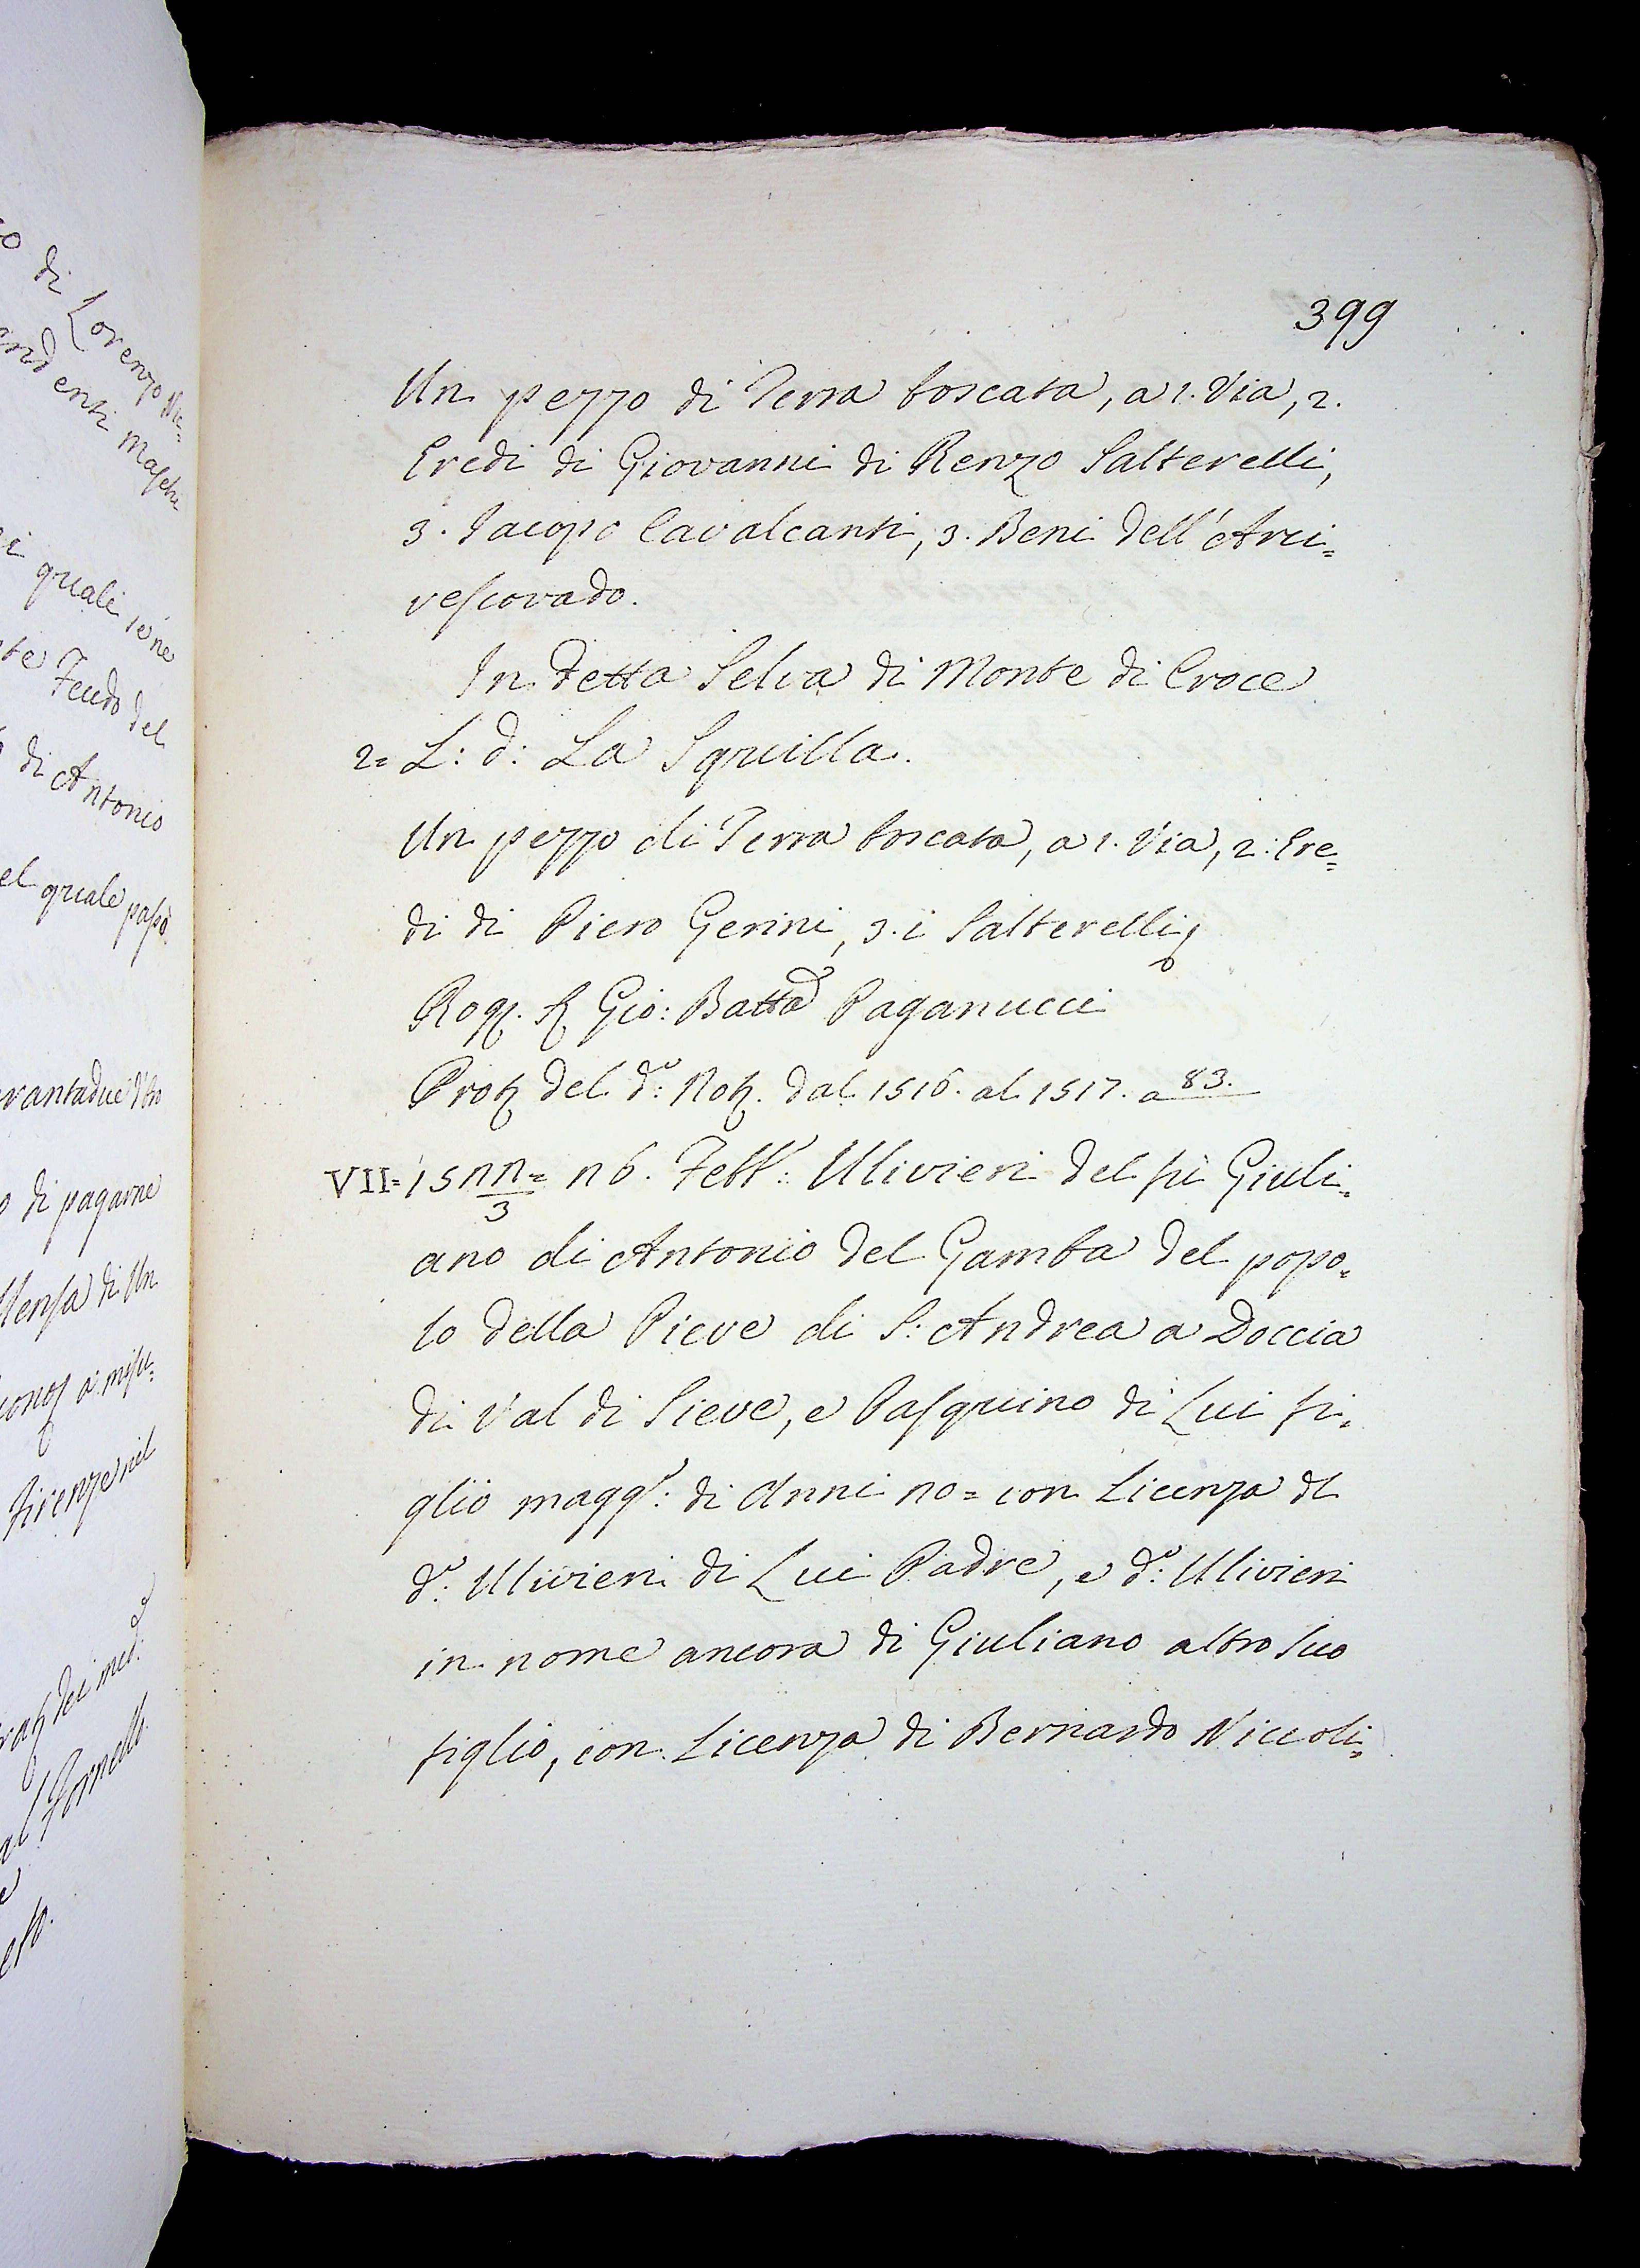 399
Un pezzo di Terra boscata, a 1. Via, 2.
Eredi di Giovanni di Renzo Salterelli,
3. Jacopo Cavalcanti, 3. Beni dell'Arci=
vescovado.
In detta Selva di Monte di Croce
2= L: d: La Squilla.
Un pezzo di Terra boscata, a 1. Via, 2: Ere=
di di Piero Gerini, 3. i Salterelli
Rog. Gio: Batta Paganucci
Prot. del d.o: Not. dal 1516. al 1517. a 83.
VII= 15 22=/3 26. Febb.o: Ulivieri del fù Giuli=
ano di Antonio del Gamba del popo=
lo della Pieve di S: Andrea a Doccia
di Val di Sieve, e Pasquino di Lui fi=
glio magg.e: di Anni 20= con Licenza dl
d.o: Ulivieri di Lui Padre, e d.o: Ulivieri
in nome ancora di Giuliano altro suo
figlio, con Licenza di Bernardo Niccoli=
di Lorenzo
quali
Feudo del
di Antonio
el quale passò
di pagarne
di Un
Firenze